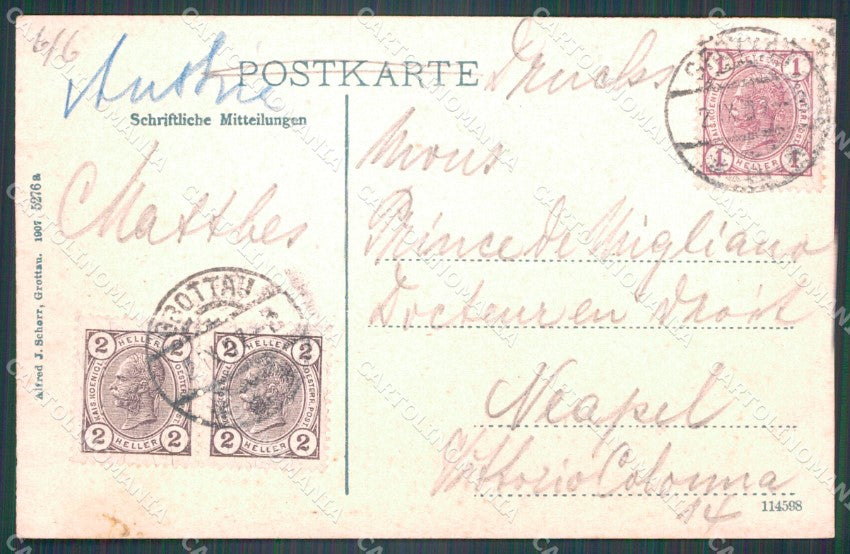 6/6
Austria
POSTKARTE
Drucks.
Schriftliche Mitteilungen
Matthes
Mons
Prince de Migliano
Docteur en Droit
Neapel
Vittorio Colonna
14
114598
Alfred J. Schorr, Grottau. 1907 5276a
GROTTAU
1 1
HELLER
1 1
2 HELLER 2
KAIS. KOENIGL. OESTERR. POST
2 HELLER 2
2 HELLER 2
KAIS. KOENIGL. OESTERR. POST
2 HELLER 2
CARTOLINOMANIA